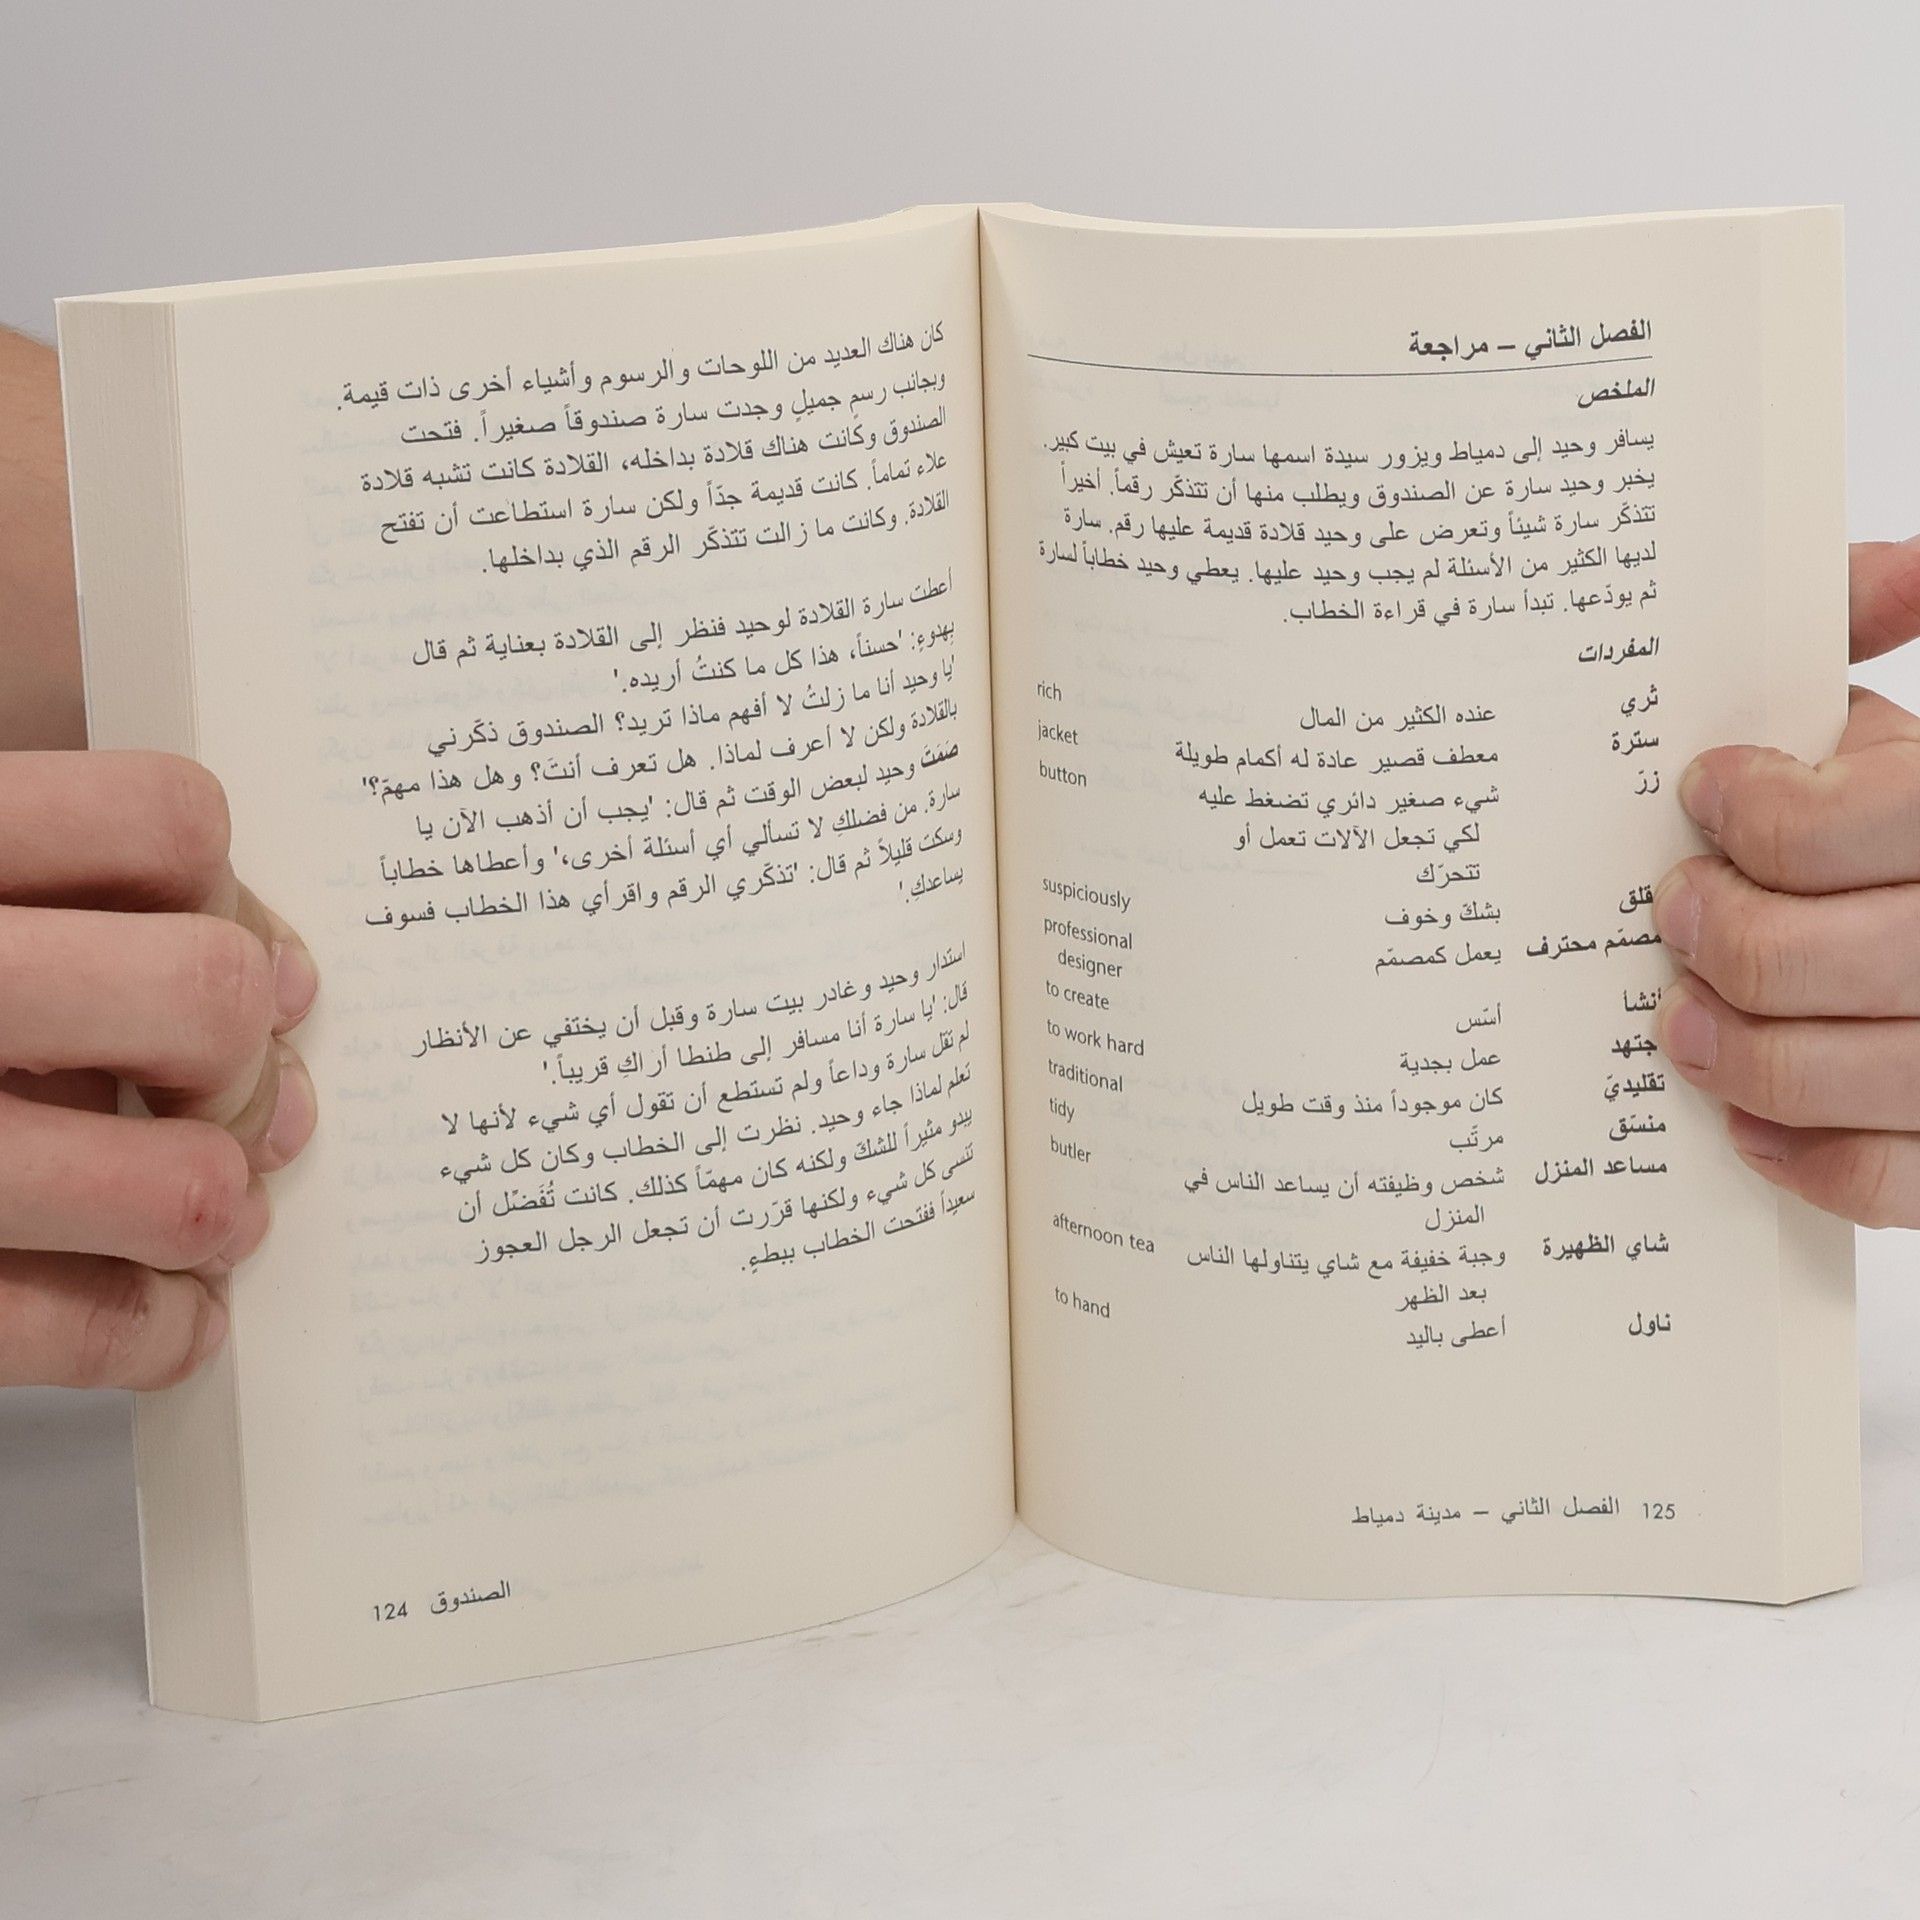 كان هناك العديد من اللوحات والرسوم وأشياء أخرى ذات قيمة.
وبجانب رسمٍ جميلٍ وجدت سارة صندوقاً صغيراً. فتحت
الصندوق وكانت هناك قلادة بداخله، القلادة كانت تشبه قلادة
علاء تماماً. كانت قديمة جدّاً ولكن سارة استطاعت أن تفتح
القلادة. وكانت ما زالت تتذكّر الرقم الذي بداخلها.
أعطت سارة القلادة لوحيد فنظر إلى القلادة بعناية ثم قال
بهدوءٍ: 'حسناً، هذا كل ما كنتُ أريده.'
'يا وحيد أنا ما زلتُ لا أفهم ماذا تريد؟ الصندوق ذكّرني
بالقلادة ولكن لا أعرف لماذا. هل تعرف أنتَ؟ وهل هذا مهمّ؟'
صَمَتَ وحيد لبعض الوقت ثم قال: 'يجب أن أذهب الآن يا
سارة. من فضلكِ لا تسألي أي أسئلة أخرى،' وأعطاها خطاباً
وسكت قليلاً ثم قال: 'تذكّري الرقم واقرأي هذا الخطاب فسوف
يساعدكِ.'
استدار وحيد وغادر بيت سارة وقبل أن يختفي عن الأنظار
قال: 'يا سارة أنا مسافر إلى طنطا أراكِ قريباً.'
لم تقل سارة وداعاً ولم تستطع أن تقول أي شيء لأنها لا
تعلم لماذا جاء وحيد. نظرت إلى الخطاب وكان كل شيء
يبدو مثيراً للشكّ ولكنه كان مهمّاً كذلك. كانت تُفَضِّل أن
تنسى كل شيء ولكنها قرّرت أن تجعل الرجل العجوز
سعيداً ففتحت الخطاب ببطءٍ.
الصندوق 124
الفصل الثاني – مراجعة
الملخص
يسافر وحيد إلى دمياط ويزور سيدة اسمها سارة تعيش في بيت كبير.
يخبر وحيد سارة عن الصندوق ويطلب منها أن تتذكّر رقماً. أخيراً
تتذكّر سارة شيئاً وتعرض على وحيد قلادة قديمة عليها رقم. سارة
لديها الكثير من الأسئلة لم يجب وحيد عليها. يعطي وحيد خطاباً لسارة
ثم يودّعها. تبدأ سارة في قراءة الخطاب.
المفردات
ثري عنده الكثير من المال rich
سترة معطف قصير عادة له أكمام طويلة jacket
زرّ شيء صغير دائري تضغط عليه button
لكي تجعل الآلات تعمل أو
تتحرّك
بشكّ وخوف suspiciously
مصمّم محترف يعمل كمصمّم professional
designer
أنشأ أسّس to create
عمل بجدية to work hard
تقليديّ كان موجوداً منذ وقت طويل traditional
منسّق مرتّب tidy
مساعد المنزل شخص وظيفته أن يساعد الناس في butler
المنزل
شاي الظهيرة وجبة خفيفة مع شاي يتناولها الناس afternoon tea
بعد الظهر
ناول أعطى باليد to hand
125 الفصل الثاني – مدينة دمياط